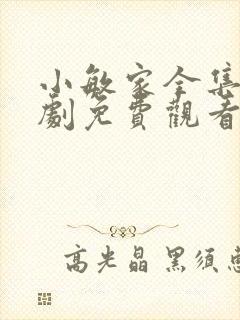 小敏家全集
劇免費觀看
高光晶 黑須